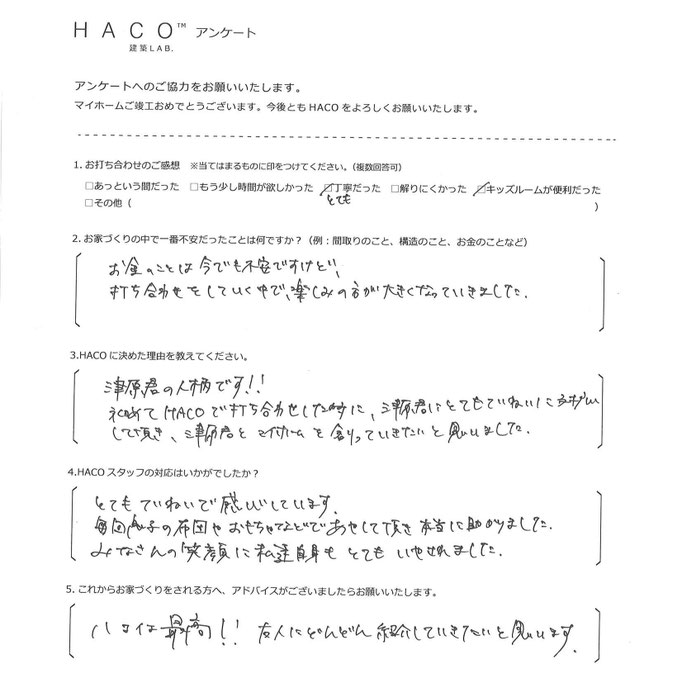 HACO™ アンケート
建築LAB.
アンケートへのご協力をお願いいたします。
マイホームご竣工おめでとうございます。今後ともHACOをよろしくお願いいたします。
1. お打ち合わせのご感想 ※当てはまるものに印をつけてください。（複数回答可）
□あっという間だった □もう少し時間が欲しかった ☑丁寧だった □解りにくかった ☑キッズルームが便利だった
とても
□その他（ ）
2. お家づくりの中で一番不安だったことは何ですか？（例：間取りのこと、構造のこと、お金のことなど）
お金のことは今でも不安ですけど、
打ち合わせをしていく中で、楽しみの方が大きくなっていきました。
3.HACOに決めた理由を教えてください。
津原君の人柄です!!
初めてHACOで打ち合わせした時に、津原君にとてもていねいに
して頂き、津原君とマイホームを創っていきたいと思いました。
4.HACOスタッフの対応はいかがでしたか？
とてもていねいで感心しています。
毎回息子の布団やおもちゃなどであやして頂き本当に助かりました。
みなさんの笑顔に私達自身もとてもいやされました。
5. これからお家づくりをされる方へ、アドバイスがございましたらお願いいたします。
ハコは最高!! 友人にどんどん紹介していきたいと思います。